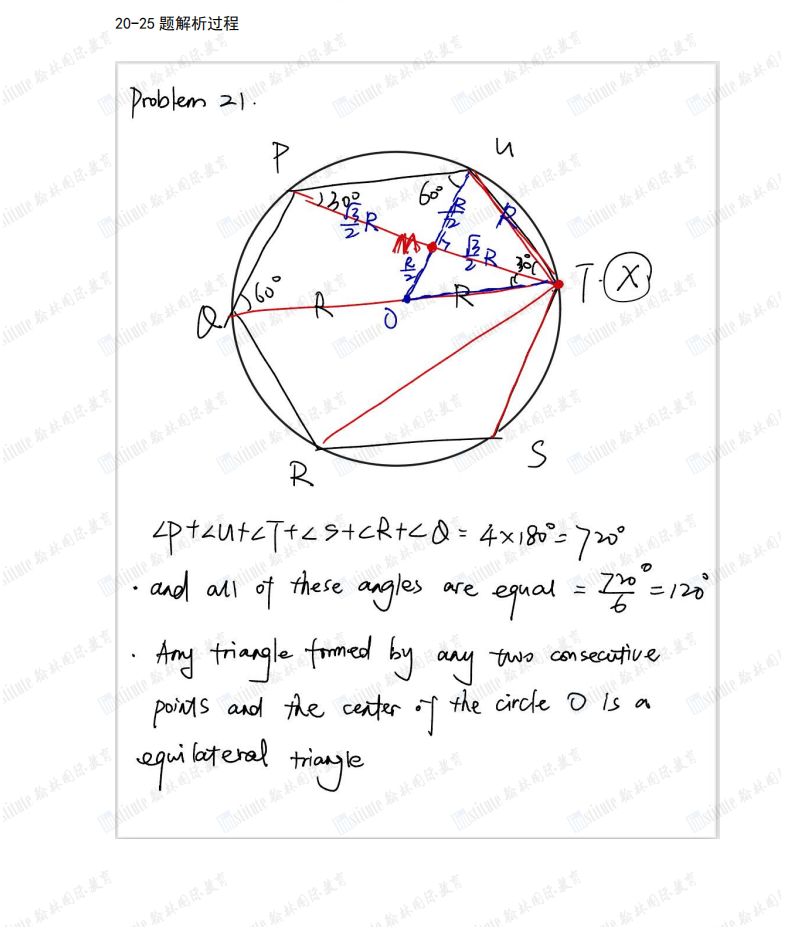 20-25 题解析过程
Problem 21.
P
U
30°
60°
R/2
R
√3/2 R
M
√3/2 R
30°
T. X
R/2
60°
Q
R
R
O
S
R
∠P+∠U+∠T+∠S+∠R+∠Q = 4×180°= 720°
· and all of these angles are equal = 720°/6 = 120°
· Any triangle formed by any two consecutive
points and the center of the circle O is a
equilateral triangle